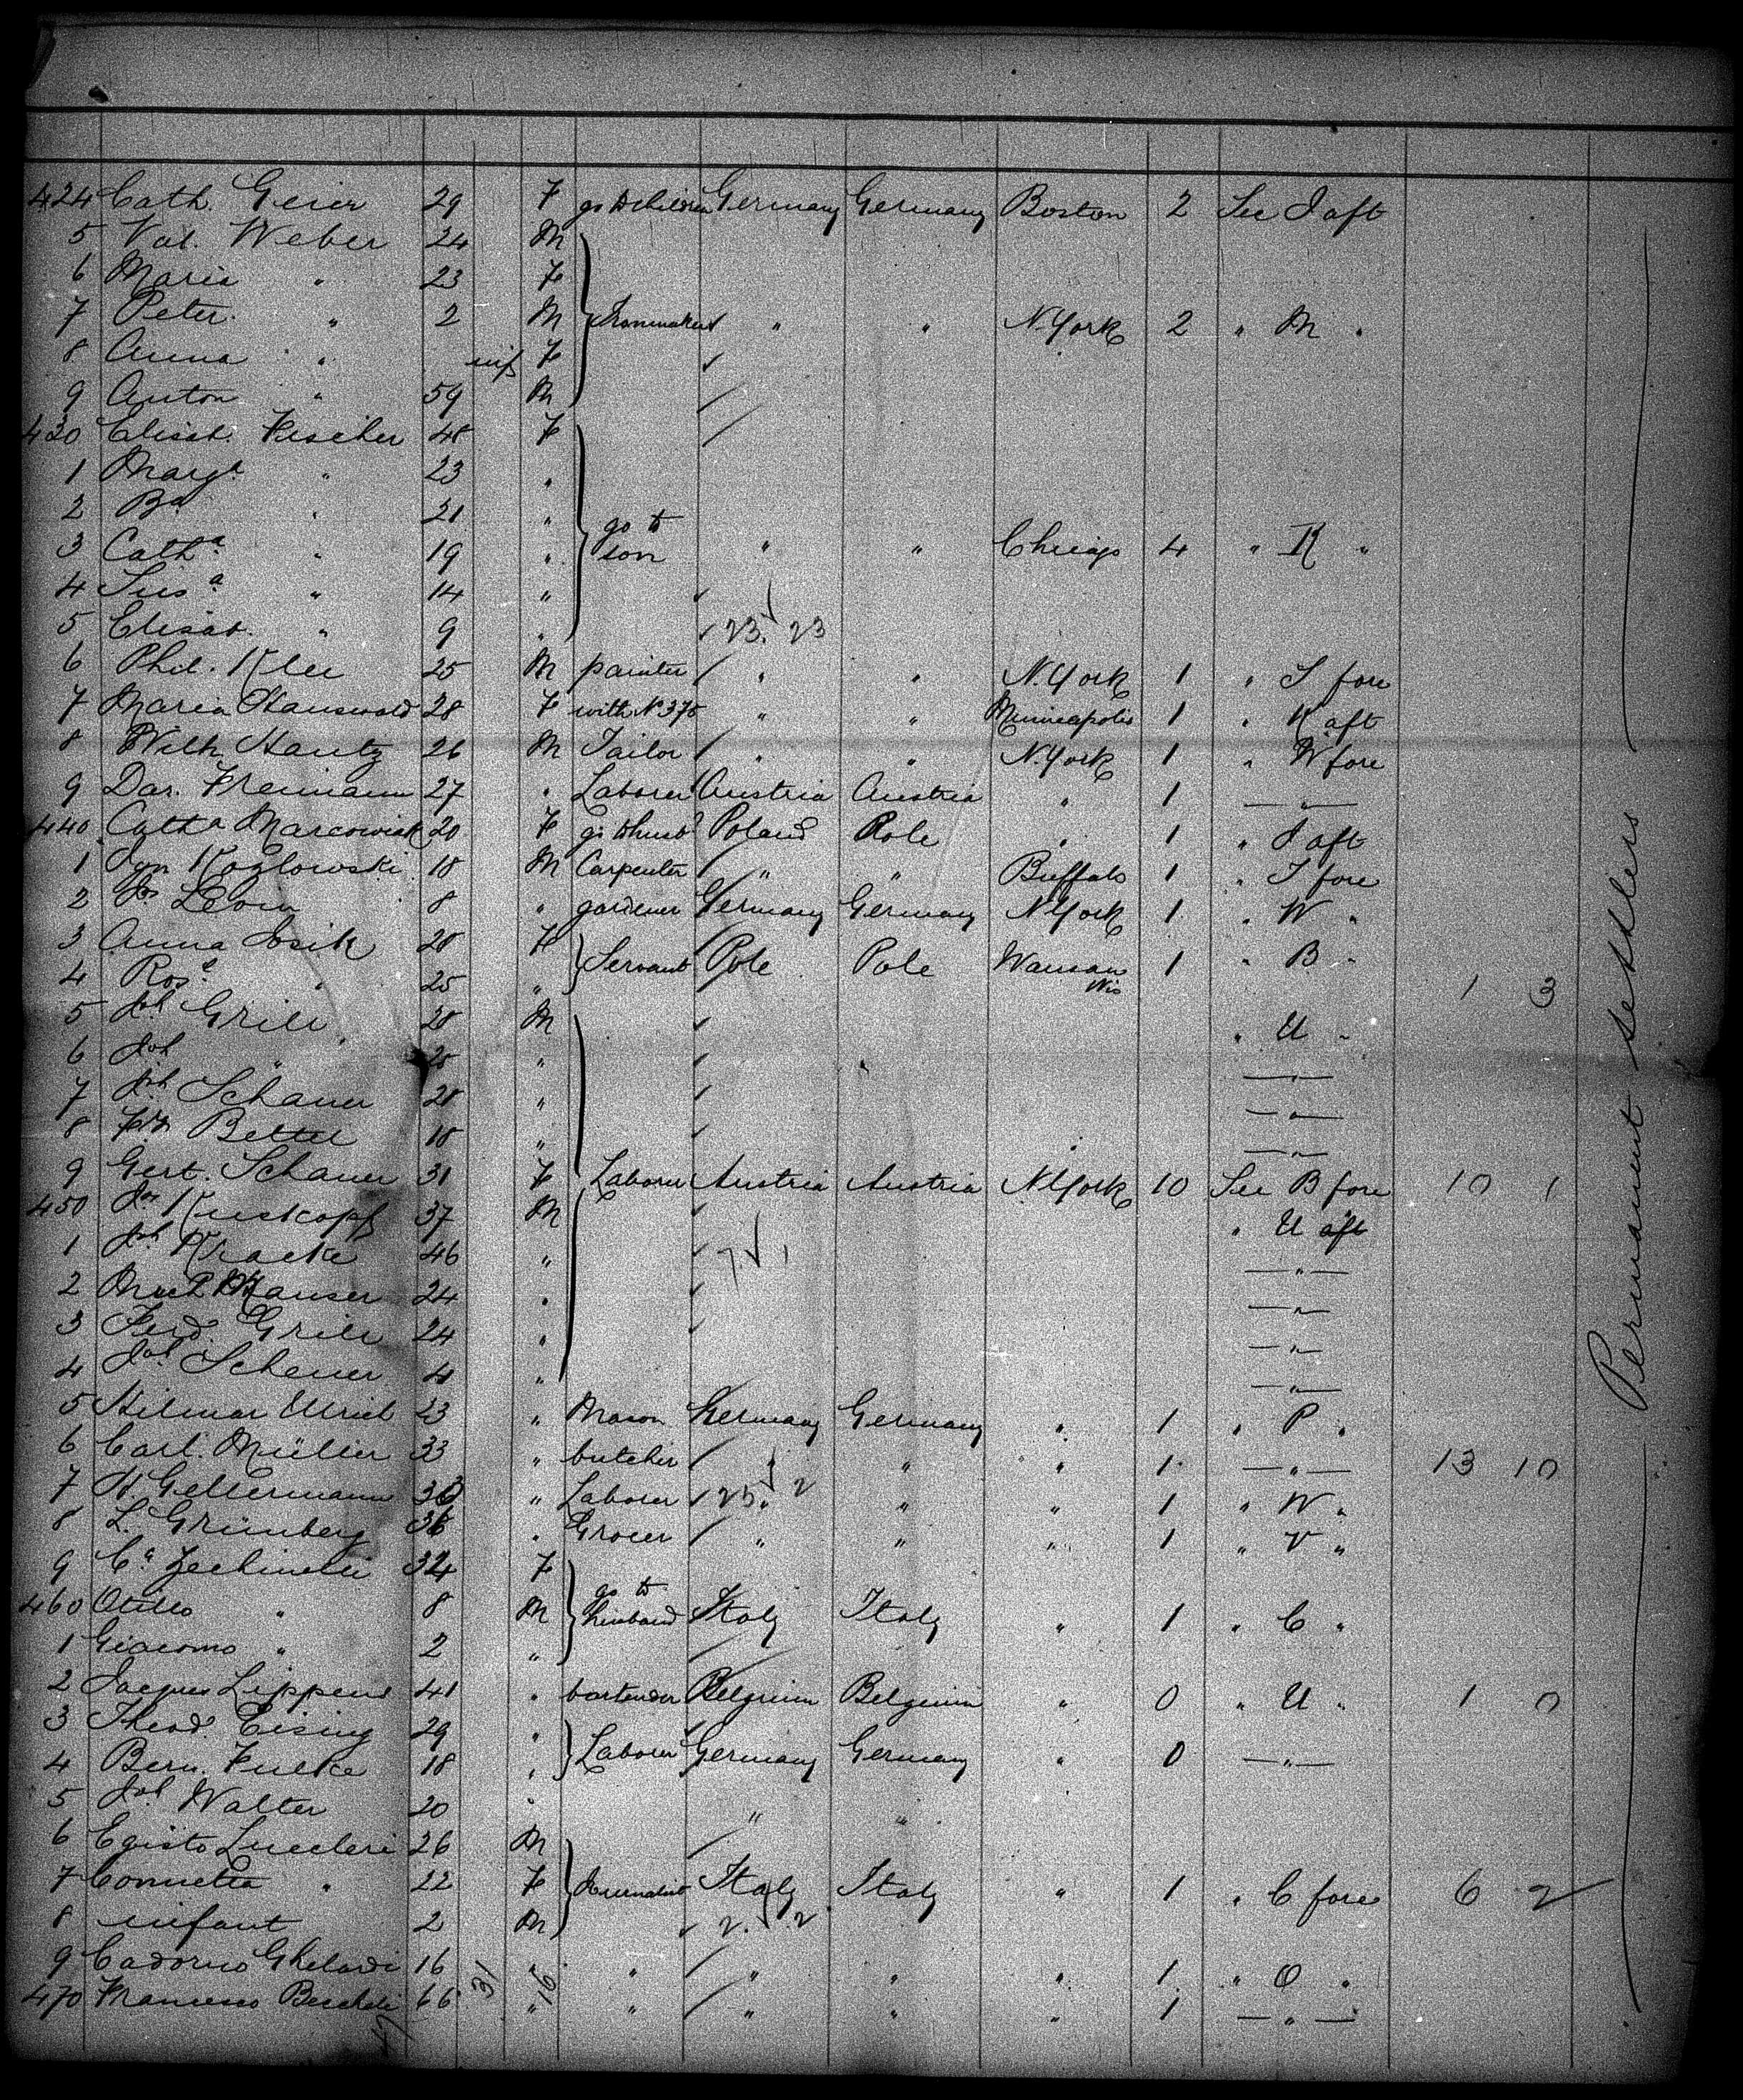 424 Cath. Geier 29 F go to children Germany Germany Boston 2 See I aft
5 Val. Weber 24 M
6 Maria " 23 F
7 Peter " 2 M " " N. York 2 " M "
8 Anna " inf F
9 Anton " 59 M
430 Elisab. Fischer 48 F
1 Marg.a " 23 "
2 Ba " 21 "
3 Cath.a " 19 " go to son " " Chicago 4 " K "
4 Sus.a " 14 "
5 Elisab. " 9 " 23. 23
6 Phil. Klee 25 M painter " " N. York 1 " I fore
7 Maria Hauswald 28 F with No 378 " " Minneapolis 1 " K aft
8 Wilh. Hautz 26 M Tailor " " N. York 1 " W fore
9 Dav. Freimann 27 " Laborer Austria Austria " 1 — " —
440 Catha Marcowiak 20 F go to husbd Poland Pole " 1 " I aft
1 Kozlowski 18 M Carpenter " " Buffalo 1 " I fore
2 Js Levin 8 " gardener Germany Germany N York 1 " W "
3 Anna Josik 20 F Servant Pole Pole Wausau Wis 1 " B "
4 Ros.a " 25 " 1 3
5 Joh Grill 28 M " U "
6 Joh " 25 " — " —
7 Joh Schauer 28 " — " —
8 Bettel 18 " — " —
9 Gert. Schauer 31 F Laborer Austria Austria N York 10 See B fore 10 1
450 Js 37 M " U aft
1 Joh Kracke 46 " — " —
2 Hauser 24 " — " —
3 Ferd. Grill 24 " — " —
4 Joh Scheuer 4 " — " —
5 Hilmar Ulrich 23 " Mason Germany Germany " 1 " P "
6 Carl. Müller 33 " butcher " " " 1 — " — 13 10
7 H Gellermann " Laborer " " " 1 " W "
8 L. Grünberg 36 " Grocer " " " 1 " V "
9 Ca Zechinelli 34 F
460 Otillo " 8 M go to husband Italy Italy " 1 " C "
1 Giacomo " 2 "
2 Jacques Lippens 41 " bartender Belgium Belgium " 0 " U " 1 0
3 Theod Eising 29 "
4 Bern. Fulke 18 " Laborer Germany Germany " 0 — " —
5 Joh Walter 20 " " "
6 Egisto Luccheri 26 M
7 " 22 F Journalist Italy Italy " 1 " C fore 6 2
8 infant 2 M 2. 2
9 Cadorno Ghelardi 16 " " " " " 1 " O "
470 Francesco 66 " " " " " 1 — " —
31 16
Permanent settlers